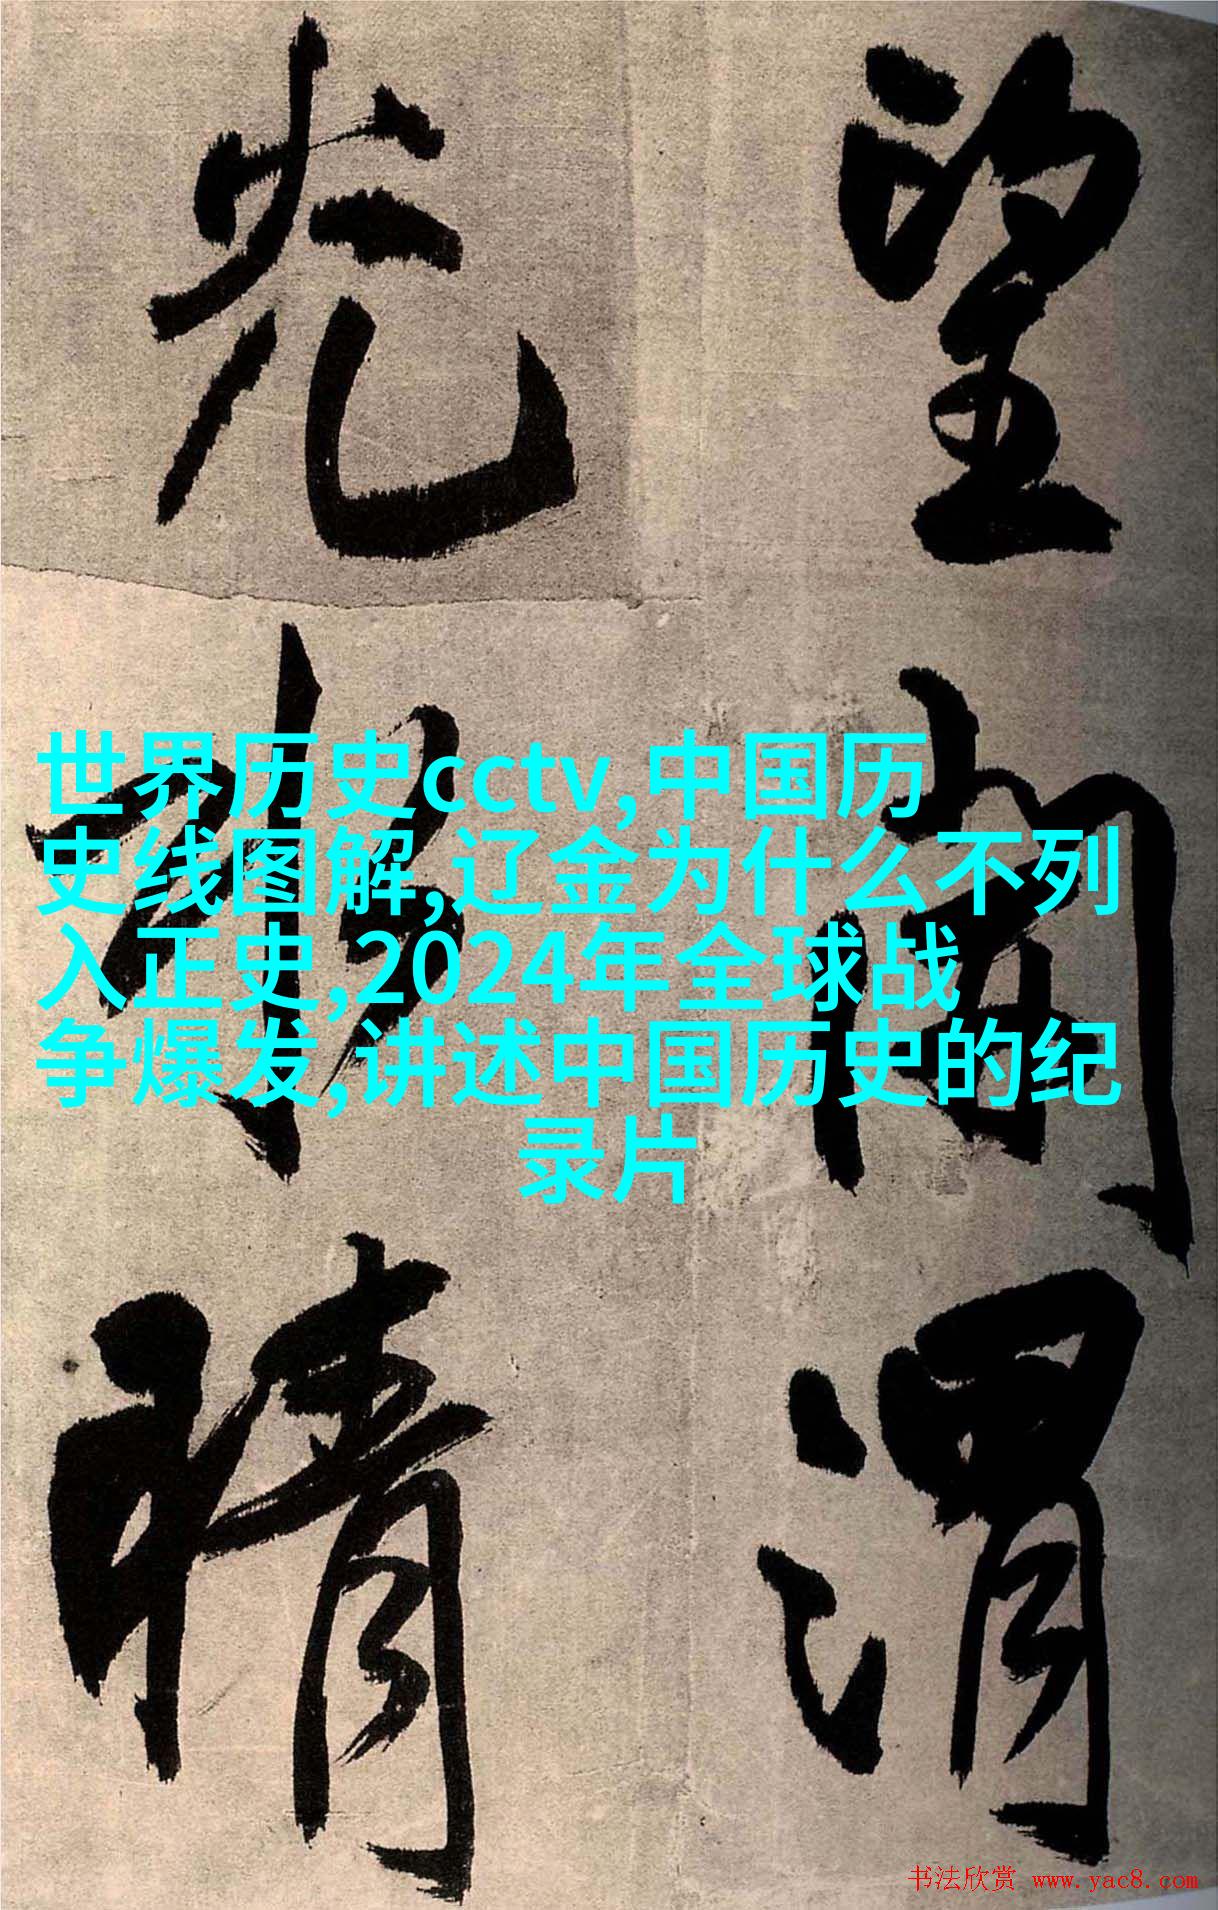 望闲渭
光水晴
世界历史cctv,中国历
史线图解,辽金为什么不列
入正史,2024年全球战
争爆发,讲述中国历史的纪
录片
书法欣赏 www.yac8.com